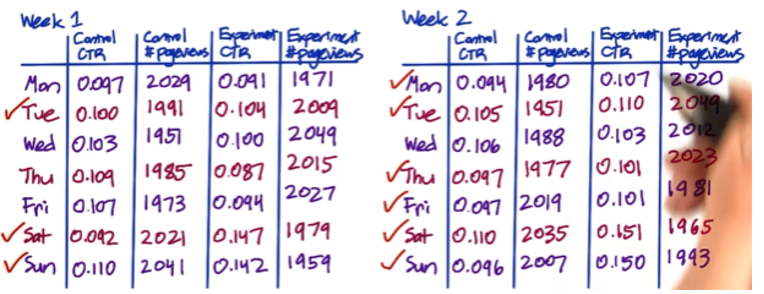 Week 1
Control CTR Control #pageviews Experiment CTR Experiment #pageviews
Mon 0.097 2029 0.091 1971
✓Tue 0.100 1991 0.104 2009
Wed 0.103 1951 0.100 2049
Thu 0.109 1985 0.087 2015
Fri 0.107 1973 0.094 2027
✓Sat 0.092 2021 0.147 1979
✓Sun 0.110 2041 0.142 1959
Week 2
Control CTR Control #pageviews Experiment CTR Experiment #pageviews
✓Mon 0.094 1980 0.107 2020
✓Tue 0.105 1951 0.110 2049
Wed 0.106 1988 0.103 2012
✓Thu 0.097 1977 0.101 2023
✓Fri 0.097 2019 0.101 1981
✓Sat 0.110 2035 0.151 1965
✓Sun 0.096 2007 0.150 1993